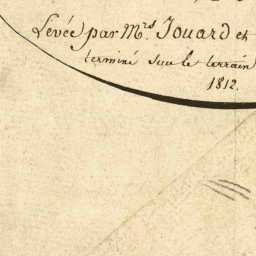 Levée par M.rs Jouard et
terminé sur le terrain
1812.